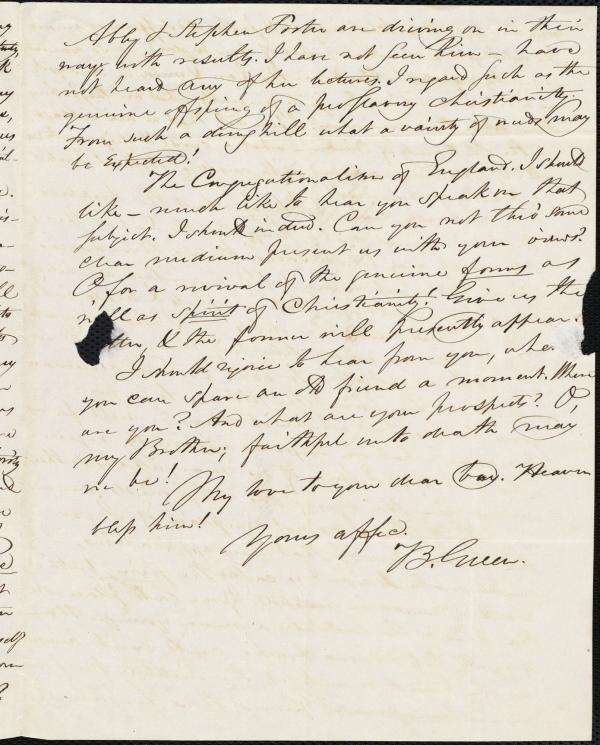 Abby & Stephen Foster are driving on in their
way with results. I have not seen him - have
not heard any of her lectures. I regard such as the
genuine offspring of a proslavery Christianity.
From such a dunghill what a vari'ty of weeds may
be expected!
The Congregationalism of England. I should
like - much like to hear you speak on that
subject. I should indeed. Can you not thro' some
clear medium present us with your views?
O for a revival of the genuine forms as
well as spirit of Christianity! Give us the
& the former will presently appear.
I should rejoice to hear from you, whe
you can spare an old friend a moment. Where
are you? And what are your prospects? O,
my Brother; faithful unto death may
we be!
My love to your dear boy. Heaven
bless him!
Yours affec.
B. Green.